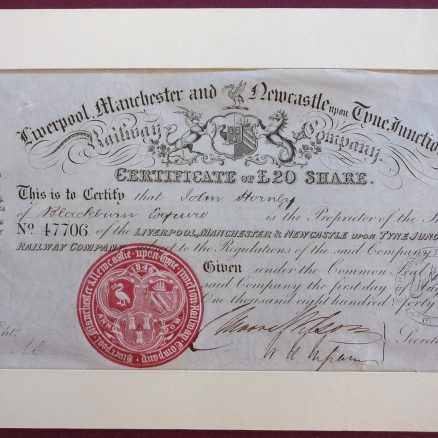 Liverpool, Manchester and Newcastle upon Tyne Junction
Railway Company.
CERTIFICATE OF £20 SHARE.
This is to Certify that John Hornby
of Blackburn Esquire is the Proprietor of the
No 47706 OF THE LIVERPOOL, MANCHESTER & NEWCASTLE UPON TYNE
RAILWAY COMPANY to the Regulations of the said Company
Given under the Common Seal
said Company the first day
One thousand eight hundred forty
Liverpool, Manchester & Newcastle-upon-Tyne Junction Railway Company
1846